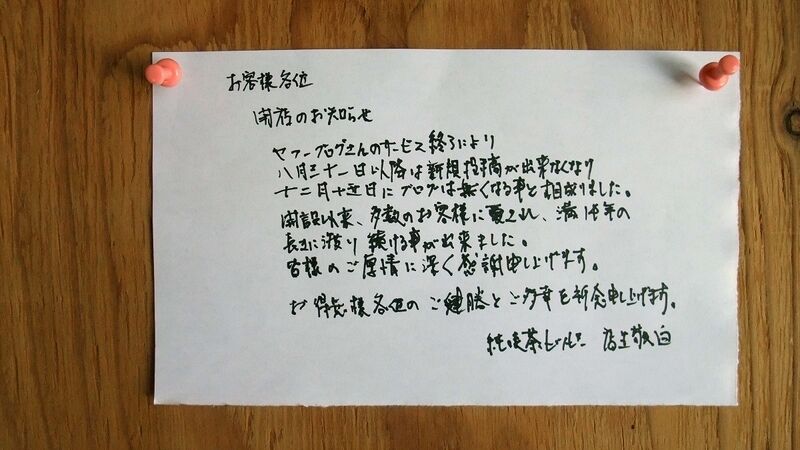 お客様各位
閉店のお知らせ
ヤフーブログさんのサービス終了により
八月三十一日以降は新規投稿が出来なくなり
十二月十五日にブログは無くなる事と相成りました。
開設以来、多数のお客様に愛され、満14年の
長きに渡り続ける事が出来ました。
皆様のご厚情に深く感謝申し上げます。
お得意様各位のご健勝とご多幸を祈念申し上げます。
純喫茶 店主敬白